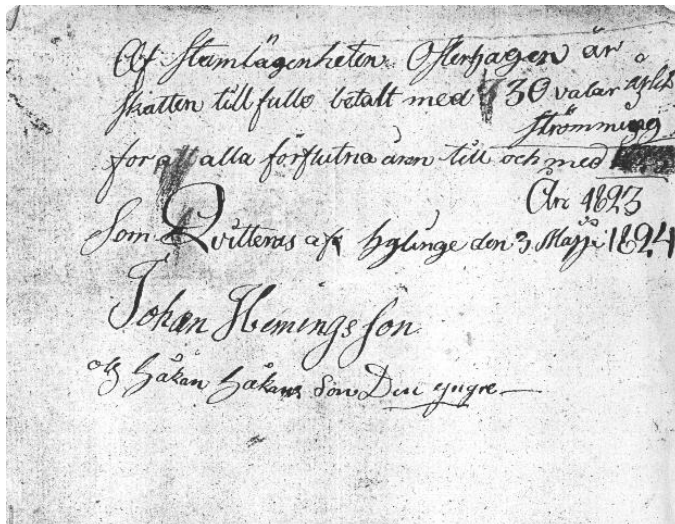 Af Stamlägenheten Österhagen är
skatten till fullo betalt med 30 valar
strömming
for alla förflutna åren till och med
År 1823
Som Qvitteras af Hylinge den 3 Maji 1824
Johan Hemingsson
och Håkan Håkans Son Den yngre